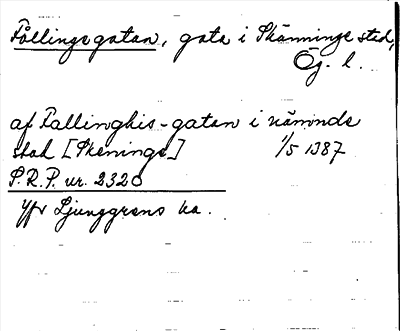 Follingegatan, gata i Skänninge stad,
Ög. l.
af Fallinghis-gatan i nämnde
stad [Skeninge] 1/5 1387
S.R.P. nr. 2320
Jfr Ljunggrens ka.